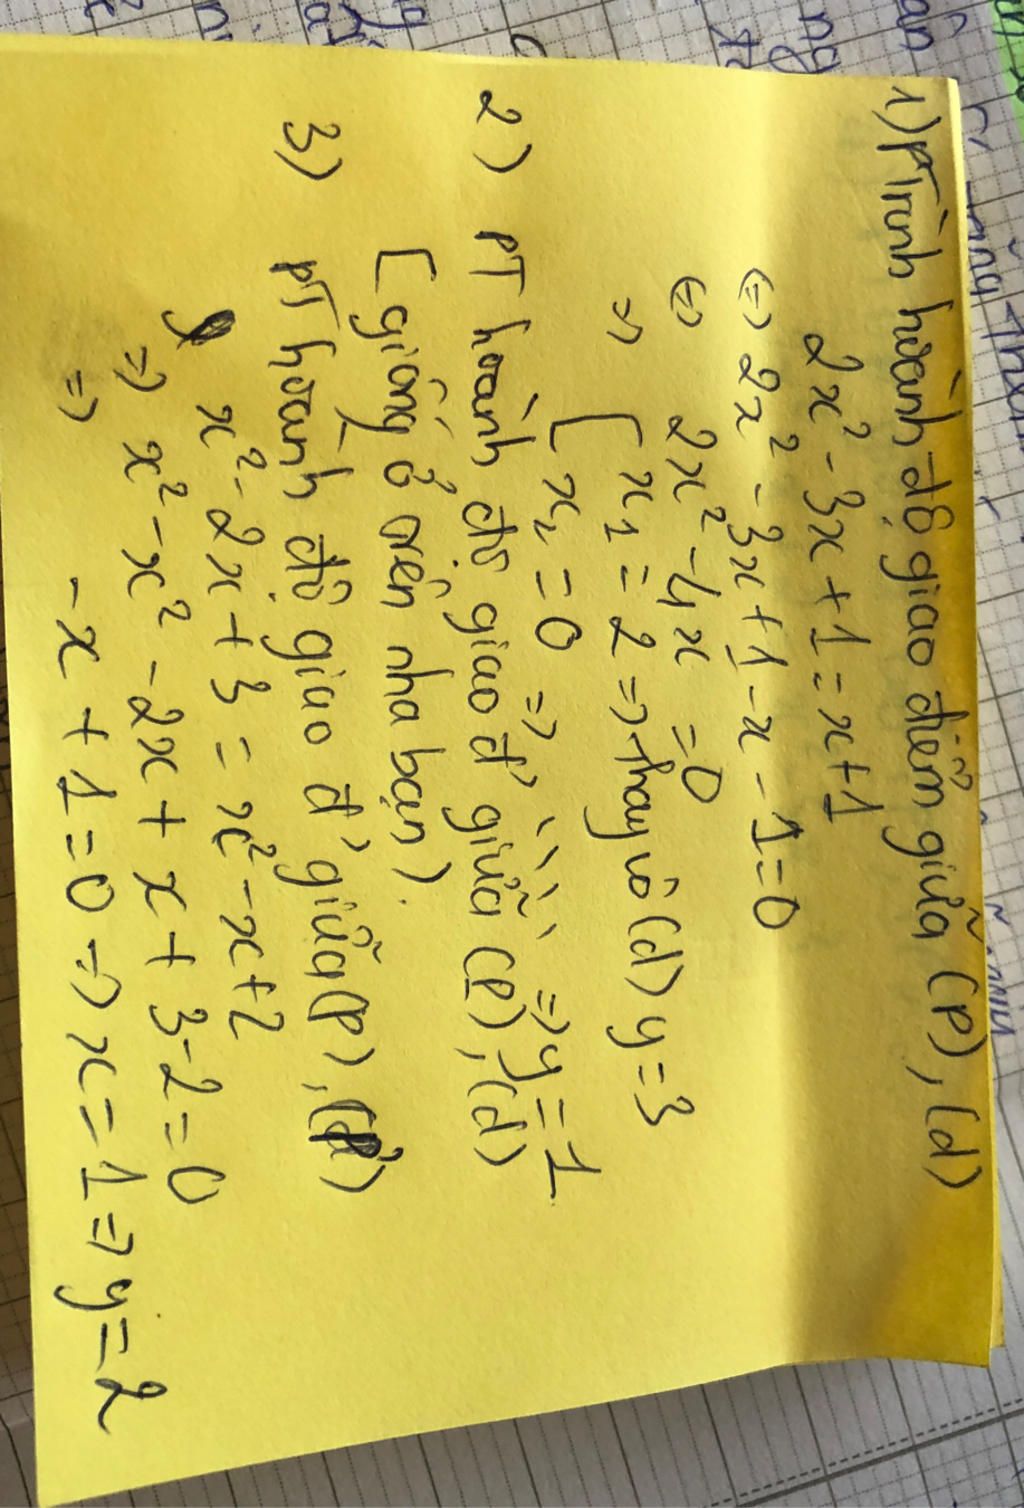 1) PTrình hoành độ giao điểm giữa (P), (d)
2x² - 3x + 1 = x + 1
⇔ 2x² - 3x + 1 - x - 1 = 0
⇔ 2x² - 4x = 0
⇒ [ x₁ = 2 ⇒ thay vô (d) y = 3
x₂ = 0 ⇒ ` ` ` ` ⇒ y = 1
2) PT hoành độ giao đ' giữa (P), (d)
[giống ở trên nha bạn).
3) PT hoành độ giao đ' giữa (P), (P')
x² - 2x + 3 = x² - x + 2
⇒ x² - x² - 2x + x + 3 - 2 = 0
⇒ - x + 1 = 0 ⇒ x = 1 ⇒ y = 2